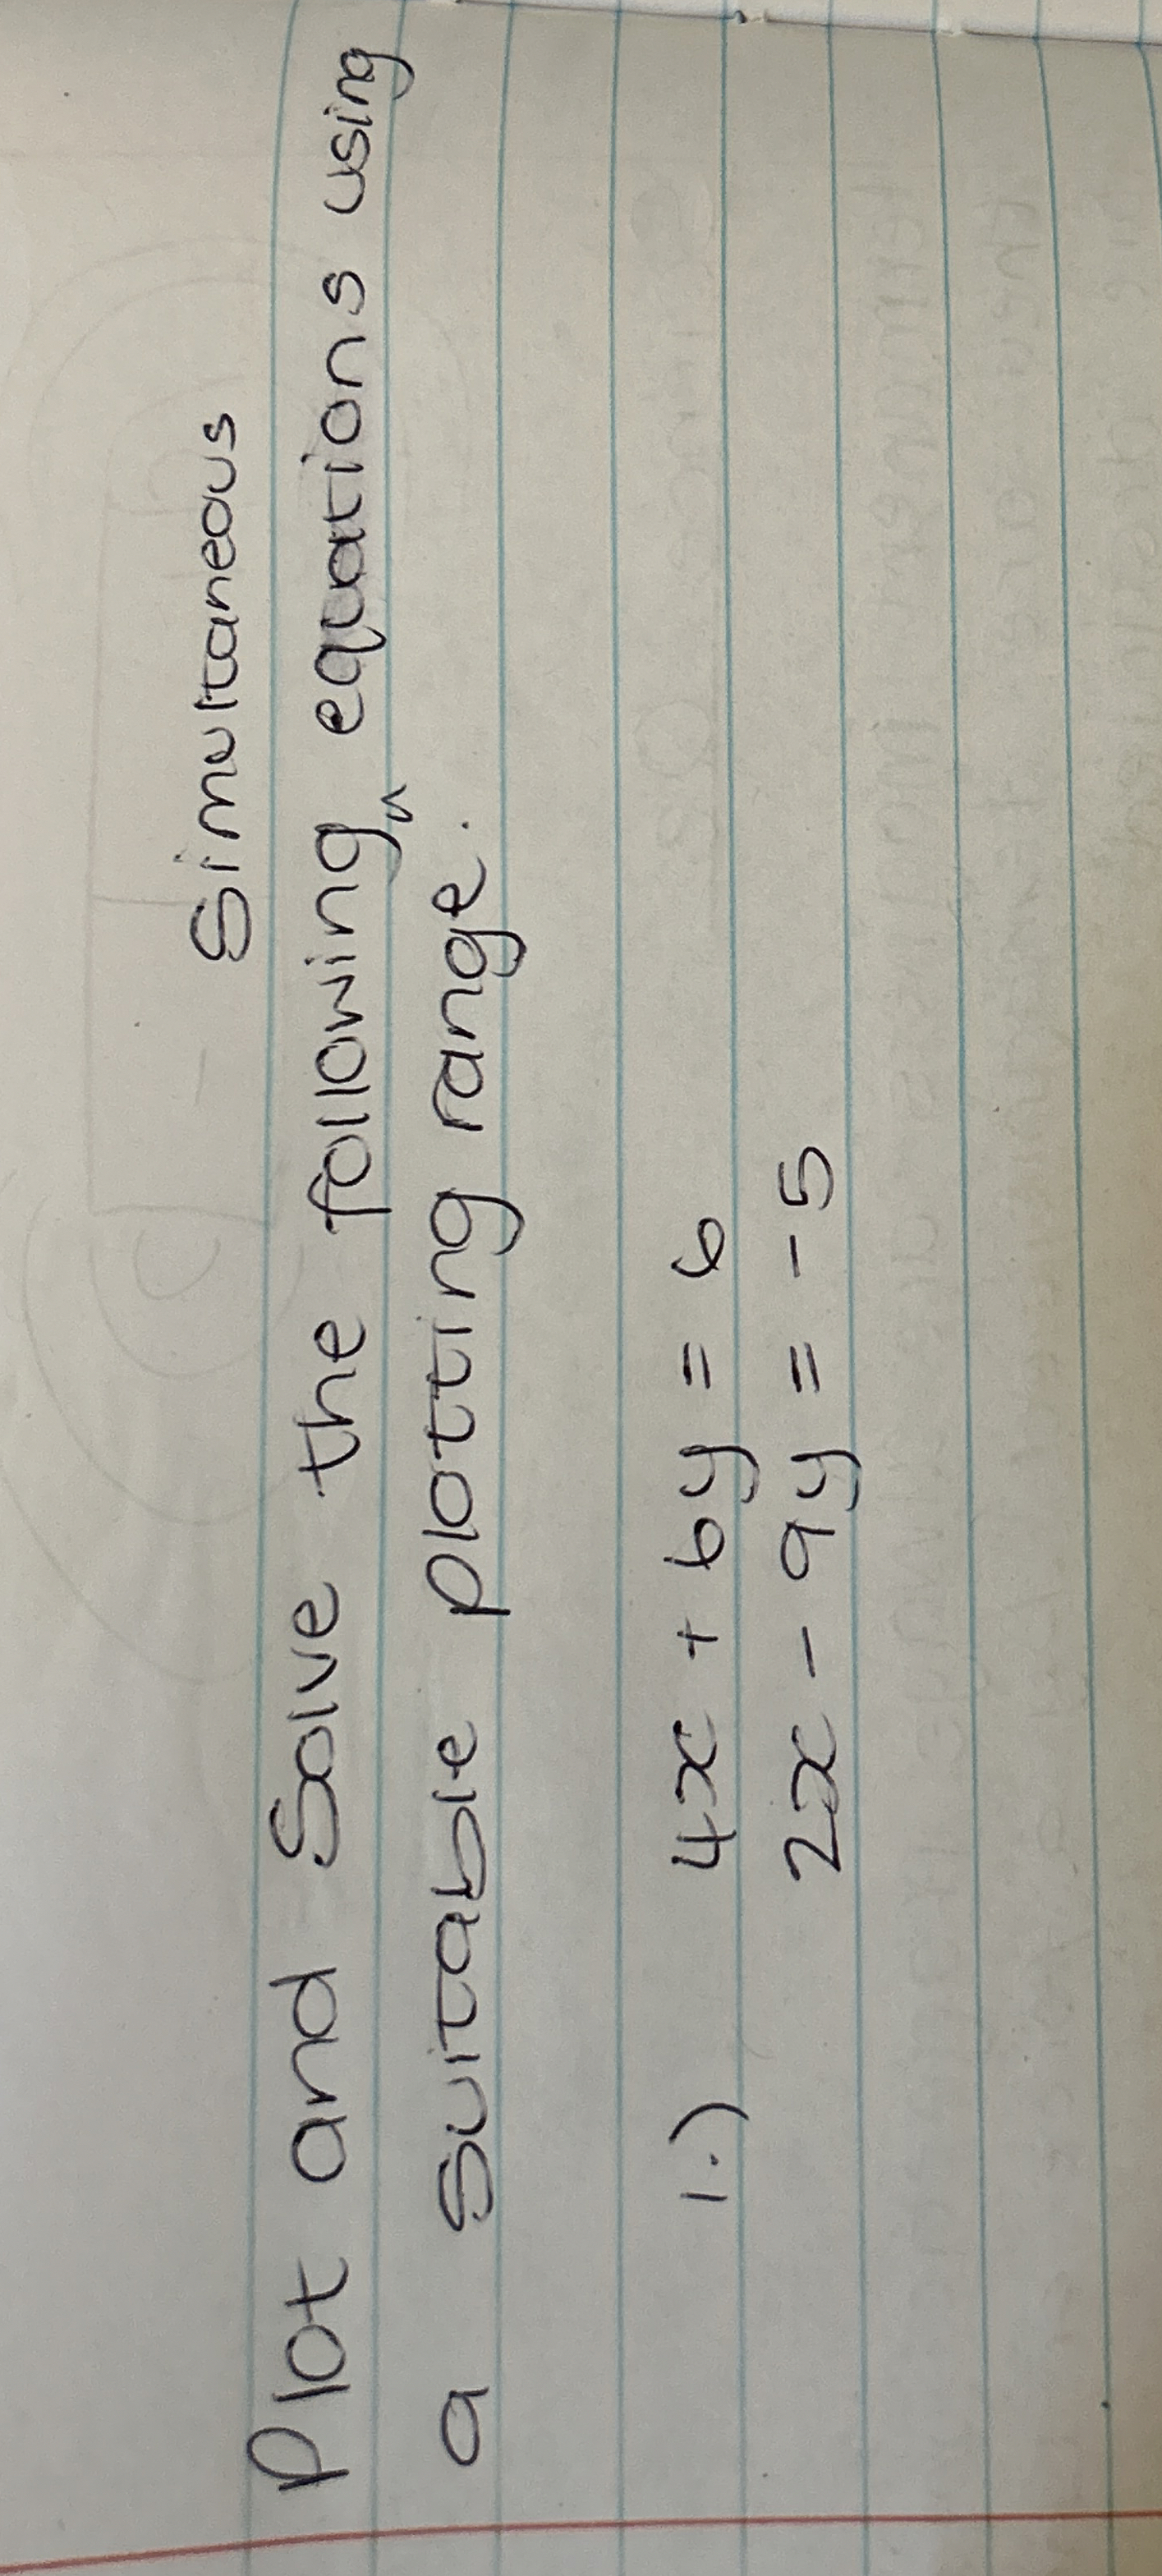 Simultaneous
Plot and Solve the following ^ equations using
a suitable plotting range.
1.) 4x + 6y = 6
2x - 9y = -5